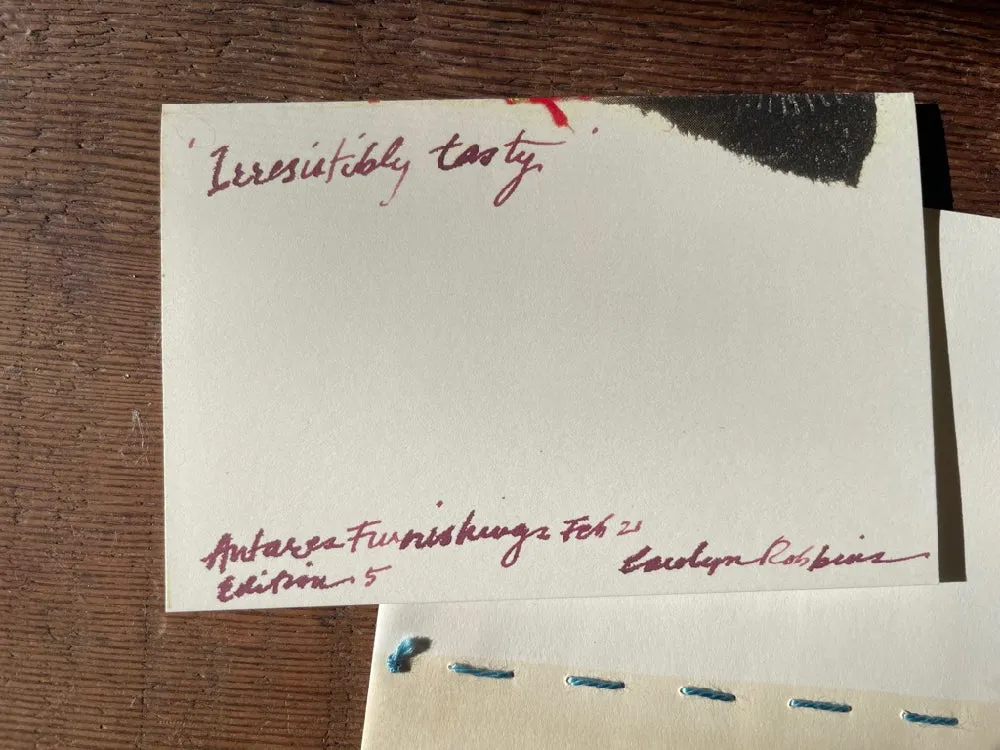 'Irresistibly tasty'
Antares Furnishings Feb 21
Edition 5
Carolyn Robbins